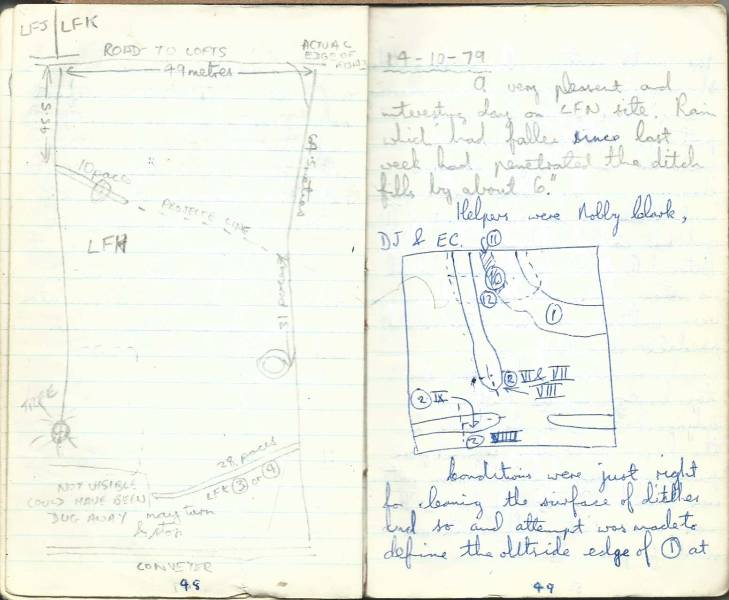 LFJ LFK
ROAD TO LOFTS
ACTUAL
EDGE OF
ROAD
49 metres
10 paces
PROJECTED LINE
LFH
31 paces
TREE
28 paces
LFK ③ or ④
NOT VISIBLE
COULD HAVE BEEN
DUG AWAY
may turn
& stop
CONVEYER
48
14-10-79
A very pleasent and
interesting day on LFN site. Rain
which had fallen since last
week had penetrated the ditch
fills by about 6."
Helpers were Molly Clark,
DJ & EC.
⑪
⑩
⑫
①
② VI & VII
VIII
② IX
②
Conditions were just right
for cleaning the surface of ditches
and so and attempt was made to
define the outside edge of ① at
49